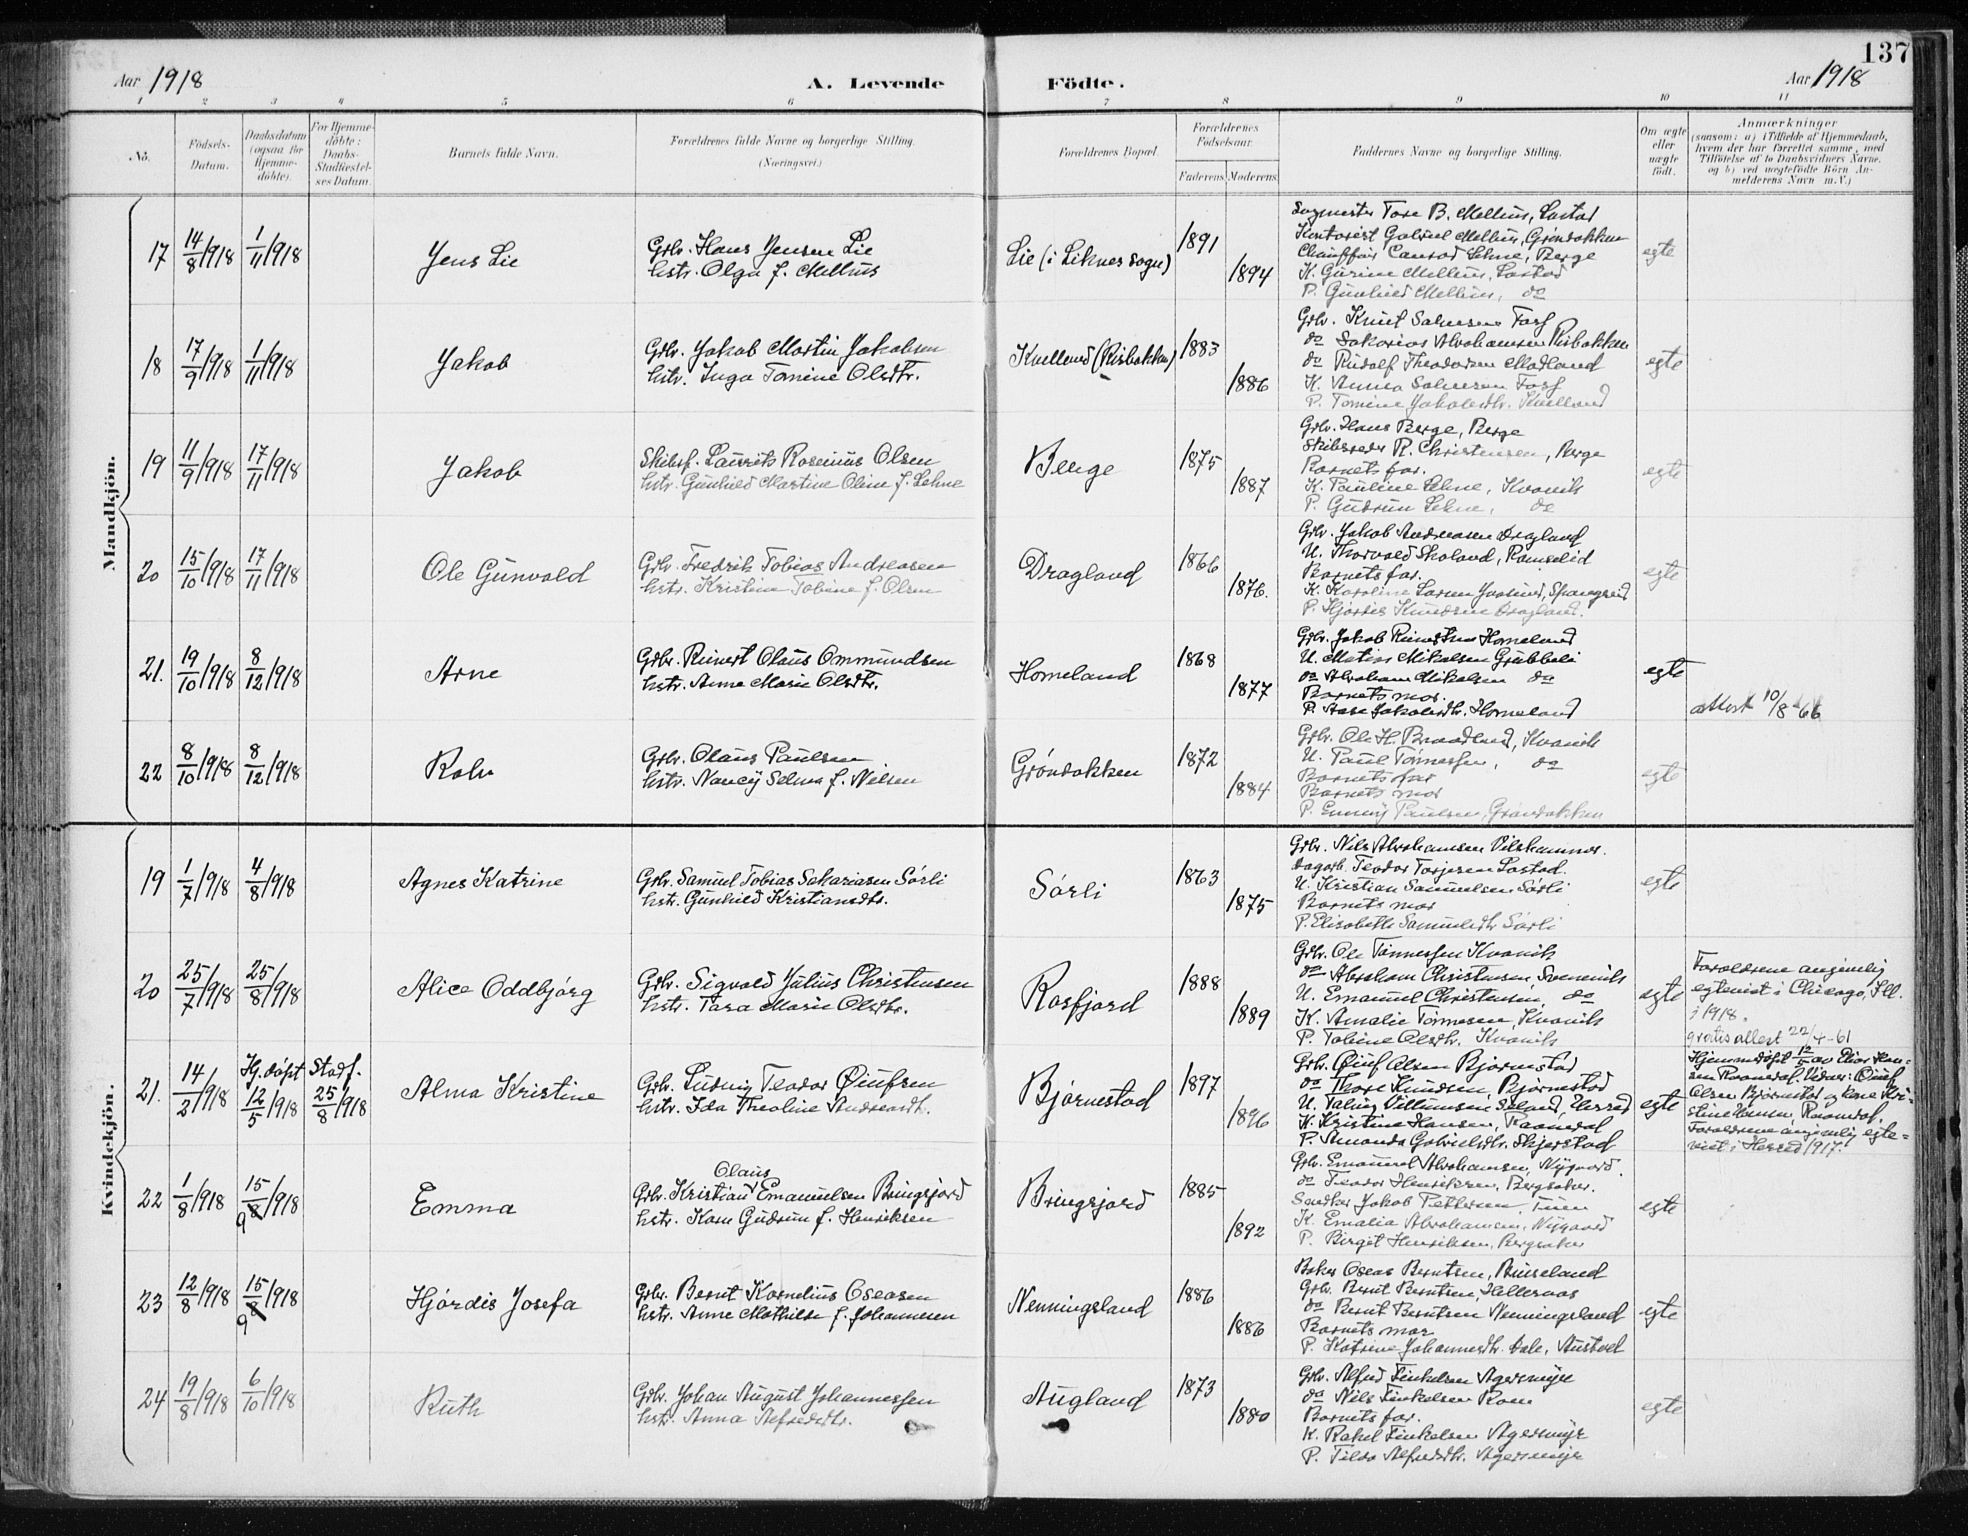 137
Aar 1918 A. Levende Födte. Aar 1918
1 2 3 4 5 6 7 8 9 10 11
No.
Födsels-Datum.
Daabsdatum (ogsaa for Hjemmedöbte).
For Hjemmedöbte: Daabs-Stadfæstelses Datum.
Barnets fulde Navn.
Forældrenes fulde Navne og borgerlige Stilling.
(Næringsvei.)
Forældrenes Bopæl.
Forældrenes Födselsaar.
Faderens. Moderens.
Faddernes Navne og borgerlige Stilling.
Om ægte eller uægte födt.
Anmærkninger
(saasom: a) i Tilfælde af Hjemmedaab,
hvem der har forrettet samme, med
Tilföielse af to Daabsvidners Navne.
og b) ved uægtefödte Börn An-
melderens Navn m. V.)
Mandkjön.
17 14/8 1918 1/11 1918 Jens Lie
Grbr. Hans Jensen Lie
hstr. Olga f. Mellius
Lie (i Liknes sogn) 1891 1894
Tore B. Mellius, Lastad
Kontorist Gabriel Mellius, Gröndokken
Chauffør Conrad Lehne, Berge
K. Gurine Mellius, Lastad
P. Gunhild Mellius, do
egte
18 17/9 1918 1/11 1918 Jakob
Grbr. Jakob Martin Jakobsen
hstr. Inga Tomine Olsdtr.
Kvelland (Risbakken) 1883 1886
Grbr. Knut Salvesen
do Sakarias Abrahamsen Risbakken
do Rudolf Theodorsen Modland
K. Anna Salvesen
P. Tomine Jakobsdtr. Kvelland
egte
19 11/9 1918 17/11 1918 Jakob
Skibsf. Laurits Rosenius Olsen
hstr. Gunhild Martine Oline f. Lehne
Berge 1875 1887
Grbr. Hans Berge, Berge
Skibsreder R. Christensen, Berge
Barnets far.
K. Pauline Lehne, Kvavik
P. Gudrun Lehne, do
egte
20 15/10 1918 17/11 1918 Ole Gunvald
Grbr. Fredrik Tobias Andreasen
hstr. Kristine Tobine f. Olsen
Dragland 1866 1876.
Grbr. Jakob Andreasen Dragland
U. Thorvald Skoland, Ramselid
Barnets far.
K. Karoline Larsen
P. Hjørdis Knudsen Dragland.
egte
21. 19/10 1918 8/12 1918 Arne
Grbr. Reinert Olaus Ommundsen
hstr. Anne Marie Olsdtr.
Homeland 1868 1877
Grbr. Jakob Reinertsen Homeland
U. Matias Mikalsen Grubbeli
do Abraham Mikalsen do
Barnets mor.
P. Aase Jakobsdtr. Homeland
egte
attest 10/8-66
22 8/10 1918 8/12 1918 Rolv
Grbr. Olaus Paulsen
hstr. Nancy Selma f. Nilsen
Gröndokken 1872 1884
Grbr. Ole H. Braadland, Kvavik
U. Paul Tönnessen, do
Barnets far
Barnets mor
P. Emmy Paulsen, Gröndokken
egte
Kvindekjön.
19 1/7 1918 4/8 1918 Agnes Katrine
Grbr. Samuel Tobias Sakariasen Sörli
hstr. Gunhild Kristiansdtr.
Sörli 1863 1875
Grbr. Nils Abrahamsen
Dagarb. Teodor Torjesen Lastad.
U. Kristian Samuelsen Sörli
Barnets mor
P. Elisabeth Samuelsdtr Sörli
egte
20 25/7 1918 25/8 1918 Alice Oddbjörg
Grbr. Sigvald Julius Christensen
hstr. Tara Marie Olsdtr.
Rosfjord 1888 1889
Grbr. Ole Tönnessen Kvavik
do Abraham Christensen, Svennevik
U. Emanuel Christensen, do
K. Amalie Tönnesen, Kvavik
P. Tobine Olsdtr. Kvavik
egte
Forældrene angivelig
egteviet i Chicago, Ill.
i 1918.
gratis attest 22/4-61
21. 14/2 1918 Hj.döpt 12/5 1918 Stadf. 25/8 1918 Alma Kristine
Grbr. Ludvig Teodor Öiufsen
hstr. Ida Theoline Andreasdtr.
Björnestad 1897 1896
Grbr. Öiuf Olsen Björnestad
do Thore Knudsen, Björnestad
U. Taling Villumsen, Herred
K. Kristine Hansen, Raamdal
P. Amanda Gabrielsdtr. Skjerstad
egte
Hjemmedöpt 12/5 av Elias Han-
sen Raamdal. Vidner: Öiuf
Olsen Björnestad og kone Kri-
stine Hansen, Raamdal.
Forældrene angivelig egte-
viet i Herred 1917.
22 1/8 1918 15/9 1918 Emma
Grbr. Kristian Olaus Emanuelsen Bringsjord
hstr. Karen Gudrun f. Henriksen
Bringsjord 1885 1892
Grbr. Emanuel Abrahamsen, Nygaard.
do Teodor Henriksen, Bergsaker.
Jakob Pettersen,
K. Emalia Abrahamsen, Nygaard
P. Birgit Henriksen, Bergsaker
egte
23 12/8 1918 15/9 1918 Hjördis Josefa
Grbr. Bernt Kornelius Oseasen
hstr. Anne Mathilde f. Johannesen
Nenningsland 1886 1886
Baker Oseas Berntsen,
Grbr. Bernt Berntsen, Helleraas
do Bernt Berntsen Nenningsland
Barnets mor
P. Katrine Johannesdtr. Dale, Austad
egte
24 19/8 1918 6/10 1918 Ruth
Grbr. Johan August Johannessen
hstr. Anna Alfredsdtr.
Augland 1873 1880
Grbr. Alfred Tinkelsen Agersmyr
do Nils Tinkelsen Rom
Barnets far.
K. Rakel Tinkelsen Agersmyr
P. Tilda Alfredsdtr. Agersmyr
egte